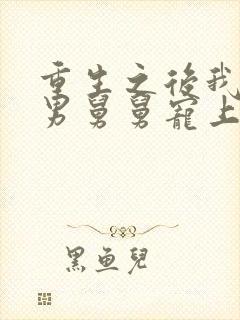 重生之後我
男舅舅寵上
黑魚兒